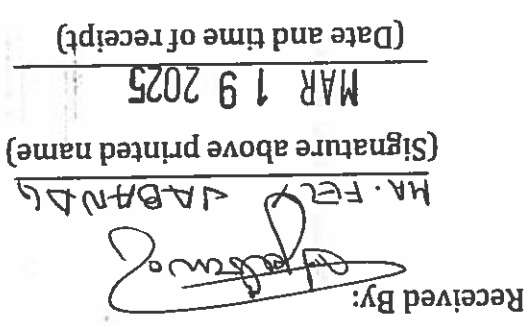 Received By:
MA. FELY JABANDG
(Signature above printed name)
MAR 19 2025
(Date and time of receipt)